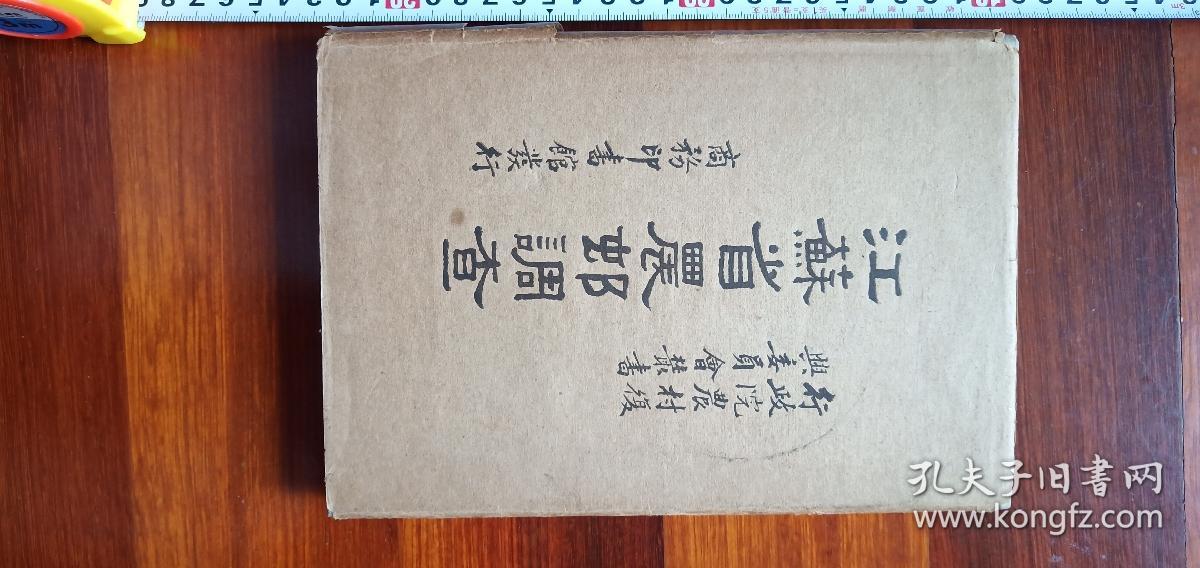 行政院農村復
興委員會叢書
江蘇省農邨調查
商務印書館發行
孔夫子旧书网
www.kongfz.com